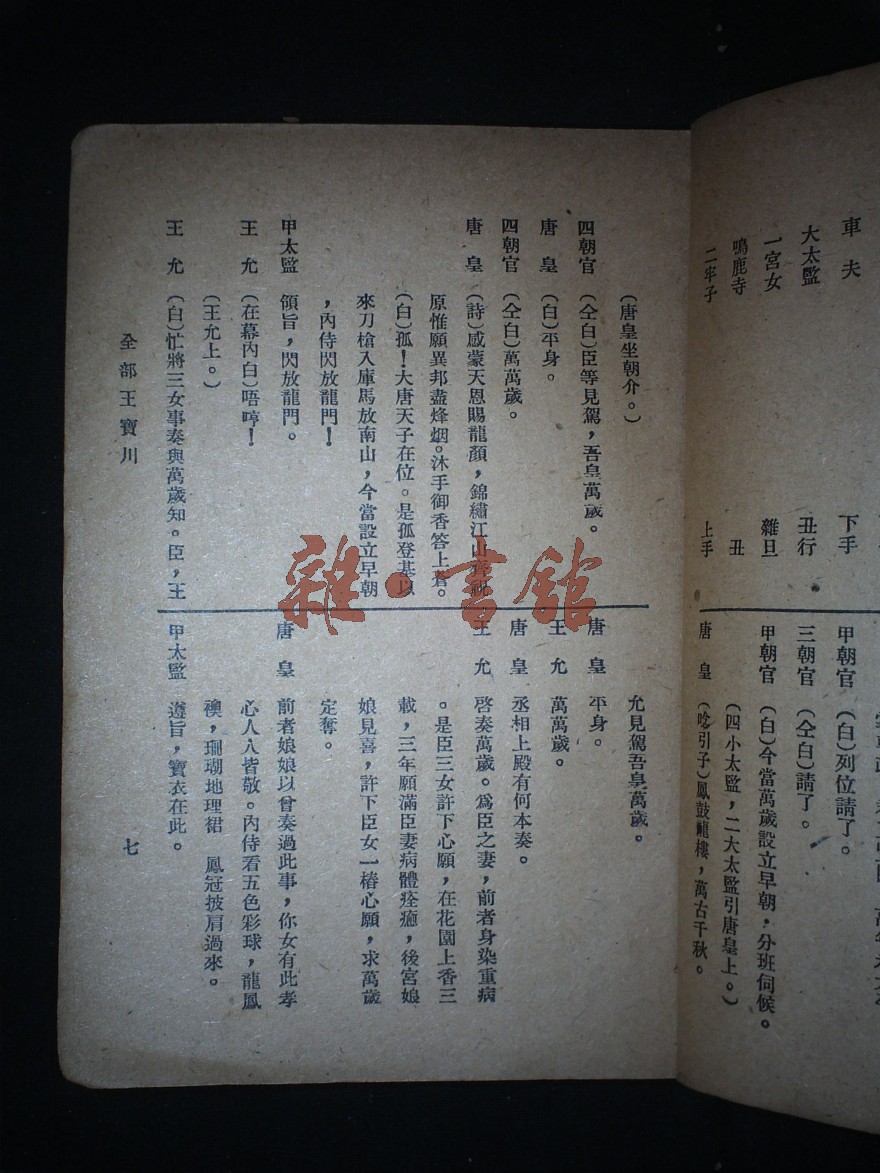 車　夫　下手
大太監　丑行
一宮女　雜旦
鳴鹿寺　丑
二牢子　上手
甲朝官　(白)列位請了。
三朝官　(仝白)請了。
甲朝官　(白)今當萬歲設立早朝，分班伺候。
(四小太監，二大太監引唐皇上。)
唐　皇　(唸引子)鳳鼓龍樓，萬古千秋。
(唐皇坐朝介。)
四朝官　(仝白)臣等見駕，吾皇萬歲。
唐　皇　(白)平身。
四朝官　(仝白)萬萬歲。
唐　皇　(詩)感蒙天恩賜龍顏，錦繡江山
原惟願異邦盡烽烟。沐手御香答上蒼。
(白)孤！大唐天子在位。是孤登基以
來刀槍入庫馬放南山，今當設立早朝
，內侍閃放龍門！
甲太監　領旨，閃放龍門。
王　允　(在幕內白)唔哼！
(王允上。)
王　允　(白)忙將三女事奏與萬歲知。臣，王
允見駕吾皇萬歲。
唐　皇　平身。
王　允　萬萬歲。
唐　皇　丞相上殿有何本奏。
王　允　啓奏萬歲。爲臣之妻，前者身染重病
。是臣三女許下心願，在花園上香三
載，三年願滿臣妻病體痊癒，後宮娘
娘見喜，許下臣女一樁心願，求萬歲
定奪。
唐　皇　前者娘娘以曾奏過此事，你女有此孝
心人人皆敬。內侍看五色彩球，龍鳳
襖，珊瑚地理裙　鳳冠披肩過來。
甲太監　遵旨，寶衣在此。
全部王寶川
七
雜·書館